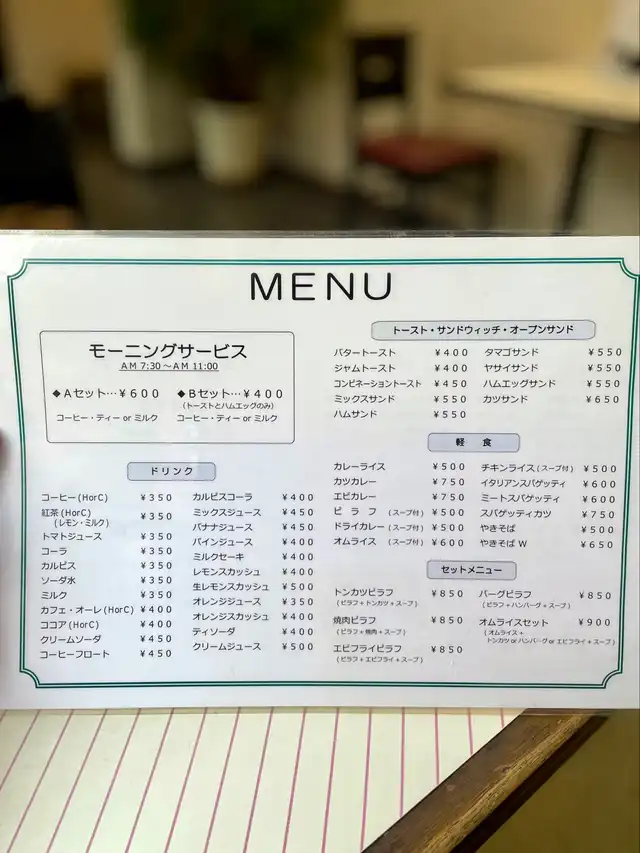 MENU
モーニングサービス
AM 7:30～AM 11:00
◆Aセット…￥600
コーヒー・ティー or ミルク
◆Bセット…￥400
(トーストとハムエッグのみ)
コーヒー・ティー or ミルク
ドリンク
コーヒー(HorC) ￥350
紅茶(HorC) ￥350
(レモン・ミルク)
トマトジュース ￥350
コーラ ￥350
カルピス ￥350
ソーダ水 ￥350
ミルク ￥350
カフェ・オーレ(HorC) ￥400
ココア(HorC) ￥400
クリームソーダ ￥450
コーヒーフロート ￥450
カルピスコーラ ￥400
ミックスジュース ￥450
バナナジュース ￥450
パインジュース ￥400
ミルクセーキ ￥400
レモンスカッシュ ￥400
生レモンスカッシュ ￥500
オレンジジュース ￥350
オレンジスカッシュ ￥400
ティソーダ ￥400
クリームジュース ￥500
トースト・サンドウィッチ・オープンサンド
バタートースト ￥400
ジャムトースト ￥400
コンビネーショントースト ￥450
ミックスサンド ￥550
ハムサンド ￥550
タマゴサンド ￥550
ヤサイサンド ￥550
ハムエッグサンド ￥550
カツサンド ￥650
軽 食
カレーライス ￥500
カツカレー ￥750
エビカレー ￥750
ピラフ (スープ付) ￥500
ドライカレー (スープ付) ￥500
オムライス (スープ付) ￥600
チキンライス (スープ付) ￥500
イタリアンスパゲッティ ￥600
ミートスパゲッティ ￥600
スパゲッティカツ ￥750
やきそば ￥500
やきそば W ￥650
セットメニュー
トンカツピラフ ￥850
(ピラフ+トンカツ+スープ)
焼肉ピラフ ￥850
(ピラフ+焼肉+スープ)
エビフライピラフ ￥850
(ピラフ+エビフライ+スープ)
バーグピラフ ￥850
(ピラフ+ハンバーグ+スープ)
オムライスセット ￥900
(オムライス+
トンカツ or ハンバーグ or エビフライ+スープ)